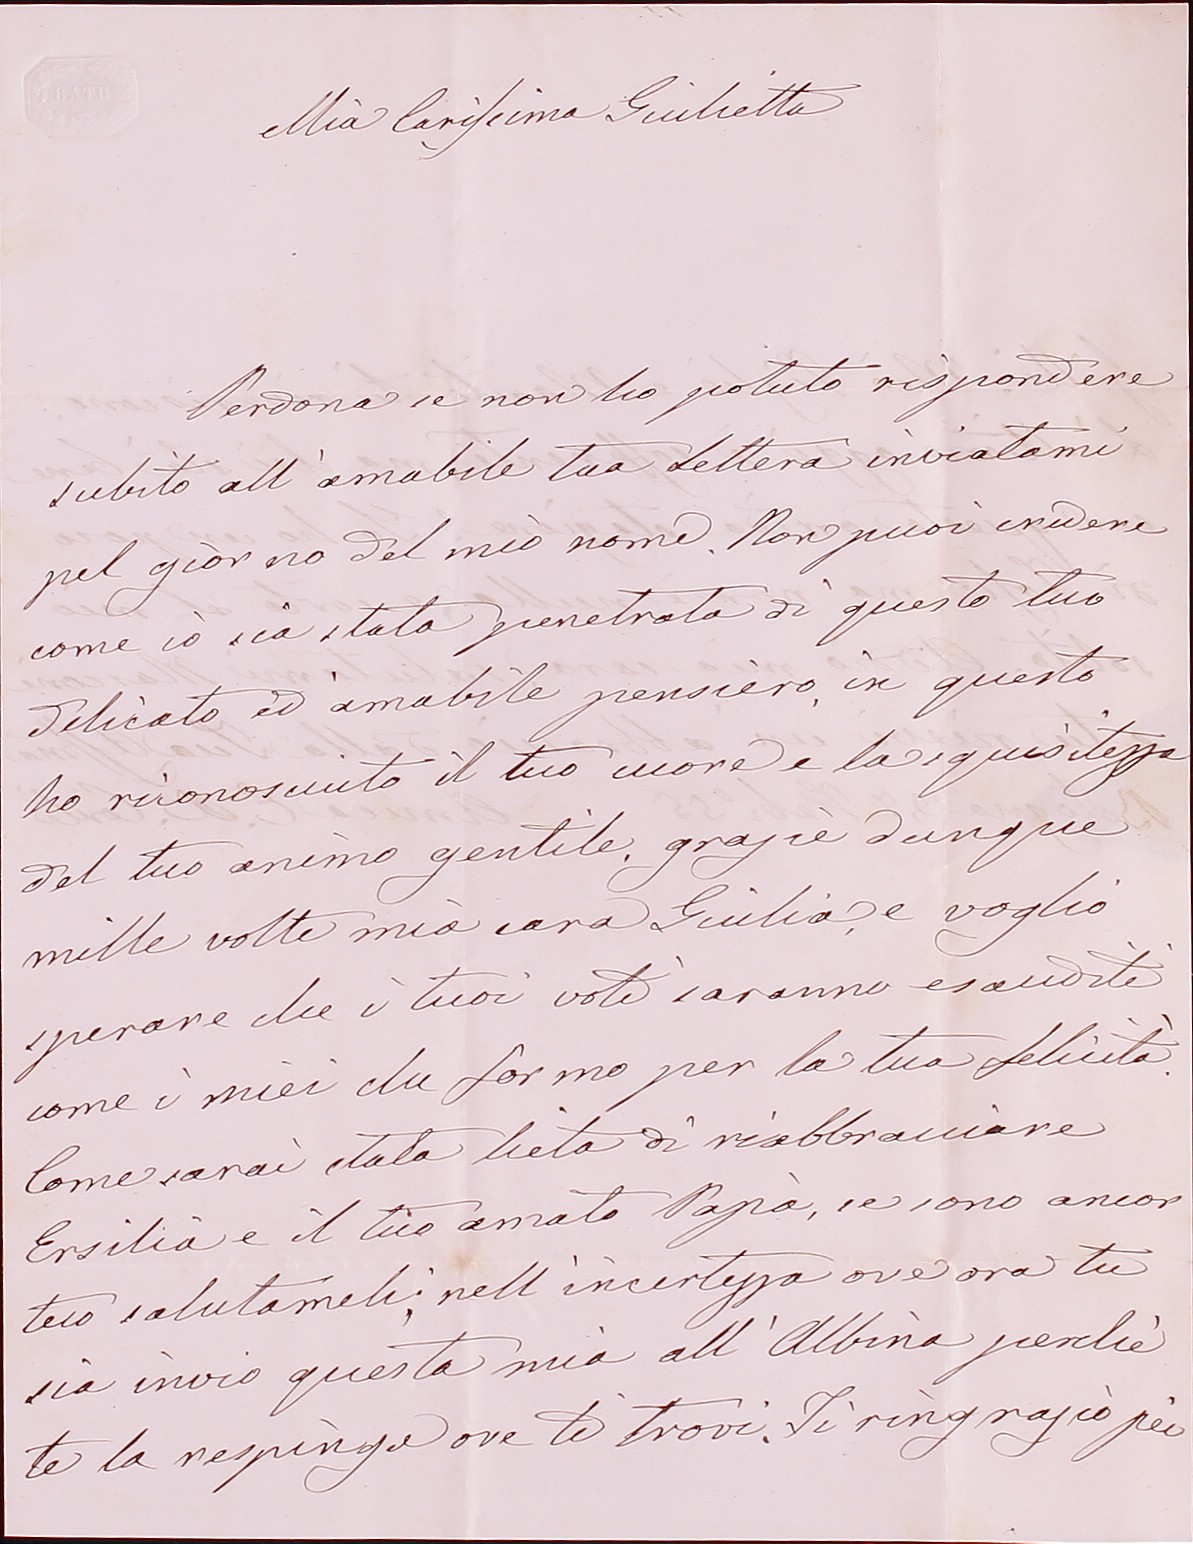 BATH
Mia Carissima Giulietta
Perdona se non ho potuto rispondere
subito all'amabile tua lettera inviatami
pel giorno del mio nome. Non puoi credere
come io sia stata penetrata di questo tuo
delicato ed amabile pensiero, in questo
ho riconosciuto il tuo cuore e la squisitezza
del tuo animo gentile, grazie dunque
mille volte mia cara Giulia, e voglio
sperare che i tuoi voti saranno esauditi
come i miei che formo per la tua felicità.
Come sarai stata lieta di riabbracciare
Ersilia e il tuo amato Papà, se sono ancor
teco salutameli; nell'incertezza ove ora tu
sia invio questa mia all'Albina perchè
te la respinga ove ti trovi. Ti ringrazio pei